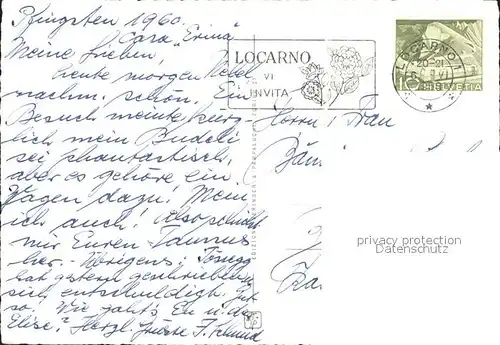 Pfingsten 1960.
"Casa Erina"
Meine Lieben,
heute morgen Nebel
nachm. schön. Ein
Besuch meinte kürz-
lich mein Budeli
sei phantastisch,
aber es gehöre ein
Wagen dazu! Mein
ich auch! Also schickt
mir Euren Taunus
her. - Übrigens:
hat gestern geschrieben
sich entschuldigt. Gut
so! Wie geht's Eu u. der
Elise? Herzl. Grüsse F.
LOCARNO
VI
INVITA
LOCARNO 1
20-21
VI
HELVETIA
Herrn u. Frau
privacy protection
Datenschutz